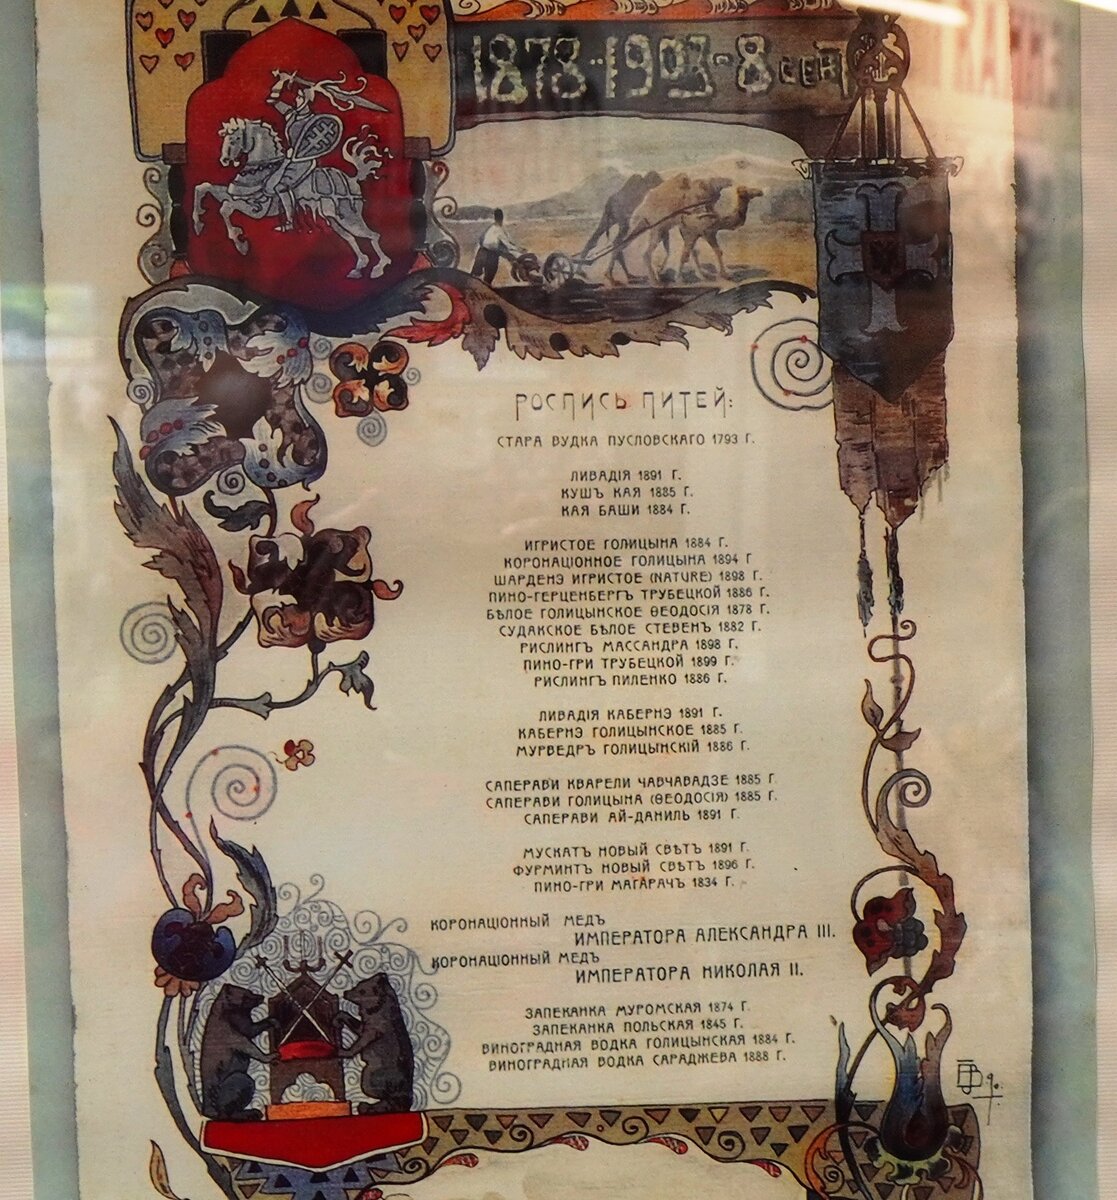 1878-1903-8 сен
РОСПИСЬ ПИТЕЙ:
СТАРА ВУДКА ПУСЛОВСКАГО 1793 Г.
ЛИВАДІЯ 1891 Г.
КУШЪ КАЯ 1885 Г.
КАЯ БАШИ 1884 Г.
ИГРИСТОЕ ГОЛИЦЫНА 1884 Г.
КОРОНАЦІОННОЕ ГОЛИЦЫНА 1894 Г
ШАРДЕНЭ ИГРИСТОЕ (NATURE) 1898 Г.
ПИНО-ГЕРЦЕНБЕРГЪ ТРУБЕЦКОЙ 1886 Г.
БѢЛОЕ ГОЛИЦЫНСКОЕ ѲЕОДОСІЯ 1878 Г.
СУДАКСКОЕ БѢЛОЕ СТЕВЕНЪ 1882 Г.
РИСЛИНГЪ МАССАНДРА 1898 Г.
ПИНО-ГРИ ТРУБЕЦКОЙ 1899 Г.
РИСЛИНГЪ ПИЛЕНКО 1886 Г.
ЛИВАДІЯ КАБЕРНЭ 1891 Г.
КАБЕРНЭ ГОЛИЦЫНСКОЕ 1885 Г.
МУРВЕДРЪ ГОЛИЦЫНСКІЙ 1886 Г.
САПЕРАВИ КВАРЕЛИ ЧАВЧАВАДЗЕ 1885 Г.
САПЕРАВИ ГОЛИЦЫНА (ѲЕОДОСІЯ) 1885 Г.
САПЕРАВИ АЙ-ДАНИЛЬ 1891 Г.
МУСКАТЪ НОВЫЙ СВѢТЪ 1891 Г.
ФУРМИНТЪ НОВЫЙ СВѢТЪ 1896 Г.
ПИНО-ГРИ МАГАРАЧЪ 1834 Г.
КОРОНАЦІОННЫЙ МЕДЪ
ИМПЕРАТОРА АЛЕКСАНДРА III.
КОРОНАЦІОННЫЙ МЕДЪ
ИМПЕРАТОРА НИКОЛАЯ II.
ЗАПЕКАНКА МУРОМСКАЯ 1874 Г.
ЗАПЕКАНКА ПОЛЬСКАЯ 1845 Г.
ВИНОГРАДНАЯ ВОДКА ГОЛИЦЫНСКАЯ 1884 Г.
ВИНОГРАДНАЯ ВОДКА САРАДЖЕВА 1888 Г.